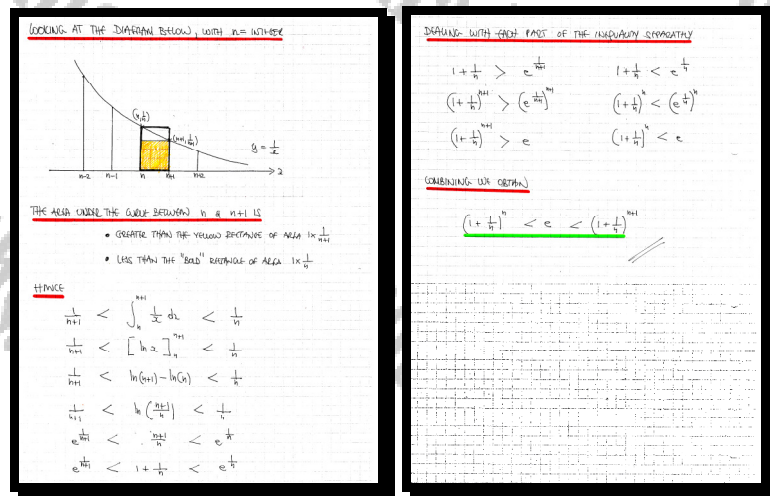 LOOKING AT THE DIAGRAM BELOW, WITH n = INTEGER
(n, 1/n)
(n+1, 1/(n+1))
y = 1/x
n-2 n-1 n n+1 n+2 x
THE AREA UNDER THE CURVE BETWEEN n & n+1 IS
• GREATER THAN THE YELLOW RECTANGLE OF AREA 1 × 1/(n+1)
• LESS THAN THE "BOLD" RECTANGLE OF AREA 1 × 1/n
HENCE
1/(n+1) < ∫_n^(n+1) 1/x dx < 1/n
1/(n+1) < [ln x]_n^(n+1) < 1/n
1/(n+1) < ln(n+1) - ln(n) < 1/n
1/(n+1) < ln((n+1)/n) < 1/n
e^(1/(n+1)) < (n+1)/n < e^(1/n)
e^(1/(n+1)) < 1 + 1/n < e^(1/n)
DEALING WITH EACH PART OF THE INEQUALITY SEPARATELY
1 + 1/n > e^(1/(n+1)) 1 + 1/n < e^(1/n)
(1 + 1/n)^(n+1) > (e^(1/(n+1)))^(n+1) (1 + 1/n)^n < (e^(1/n))^n
(1 + 1/n)^(n+1) > e (1 + 1/n)^n < e
COMBINING WE OBTAIN
(1 + 1/n)^n < e < (1 + 1/n)^(n+1)